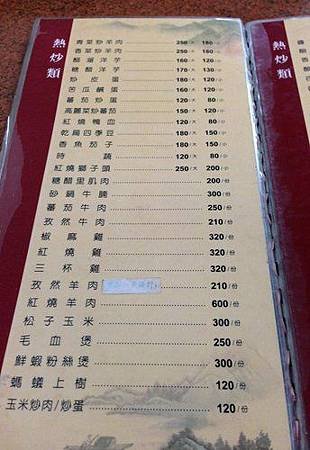 熱炒類
青菜炒羊肉 250/大 180/小
香菜炒羊肉 250/大 180/小
醋溜洋芋 160/大 120/小
糖醋洋芋 170/大 130/小
炒皮蛋 160/大 120/小
苦瓜鹹蛋 160/大 120/小
蕃茄炒蛋 120/大 80/小
高麗菜炒蕃茄 150/大 120/小
紅燒鴨血 120/大 80/小
乾扁四季豆 180/大 150/小
香魚茄子 180/大 150/小
時蔬 120/大 80/小
紅燒獅子頭 250/大 150/小
糖醋里肌肉 200/份
砂鍋牛腩 300/份
蕃茄牛肉 250/份
孜然牛肉 210/份
椒麻雞 320/份
紅燒雞 320/份
三杯雞 320/份
孜然羊肉 210/份
紅燒羊肉 600/份
松子玉米 300/份
毛血煲 250/份
鮮蝦粉絲煲 300/份
螞蟻上樹 120/份
玉米炒肉/炒蛋 120/份